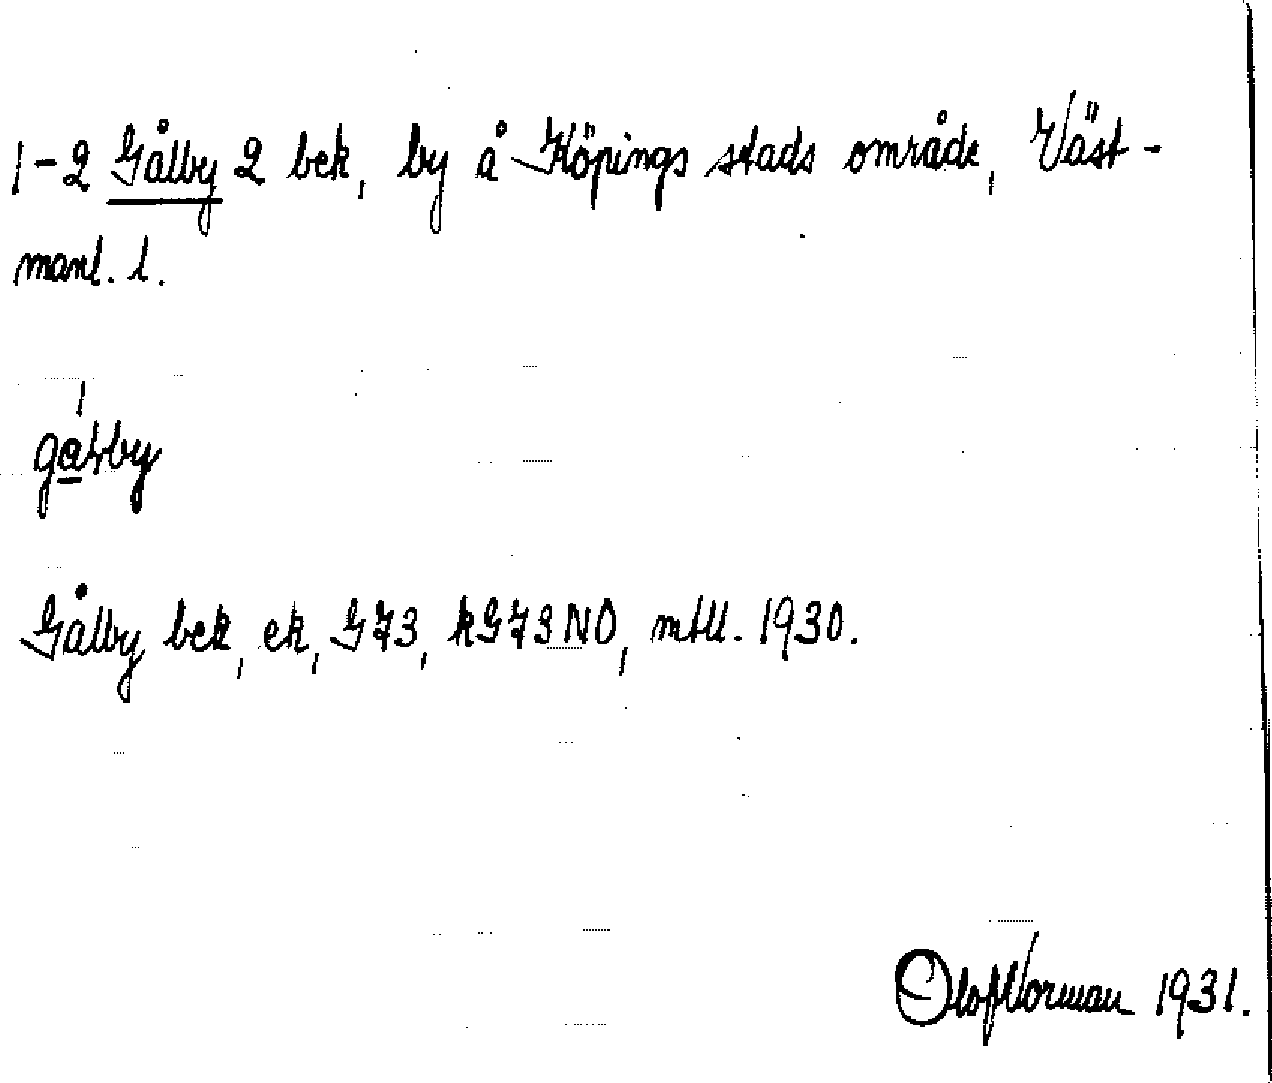 1-2 Gålby 2 bek, by å Köpings stads område, Väst-
manl. l.
gaɫby
Gålby bek, ek, G73, kG73NO, mtll. 1930.
Olof Norman 1931.